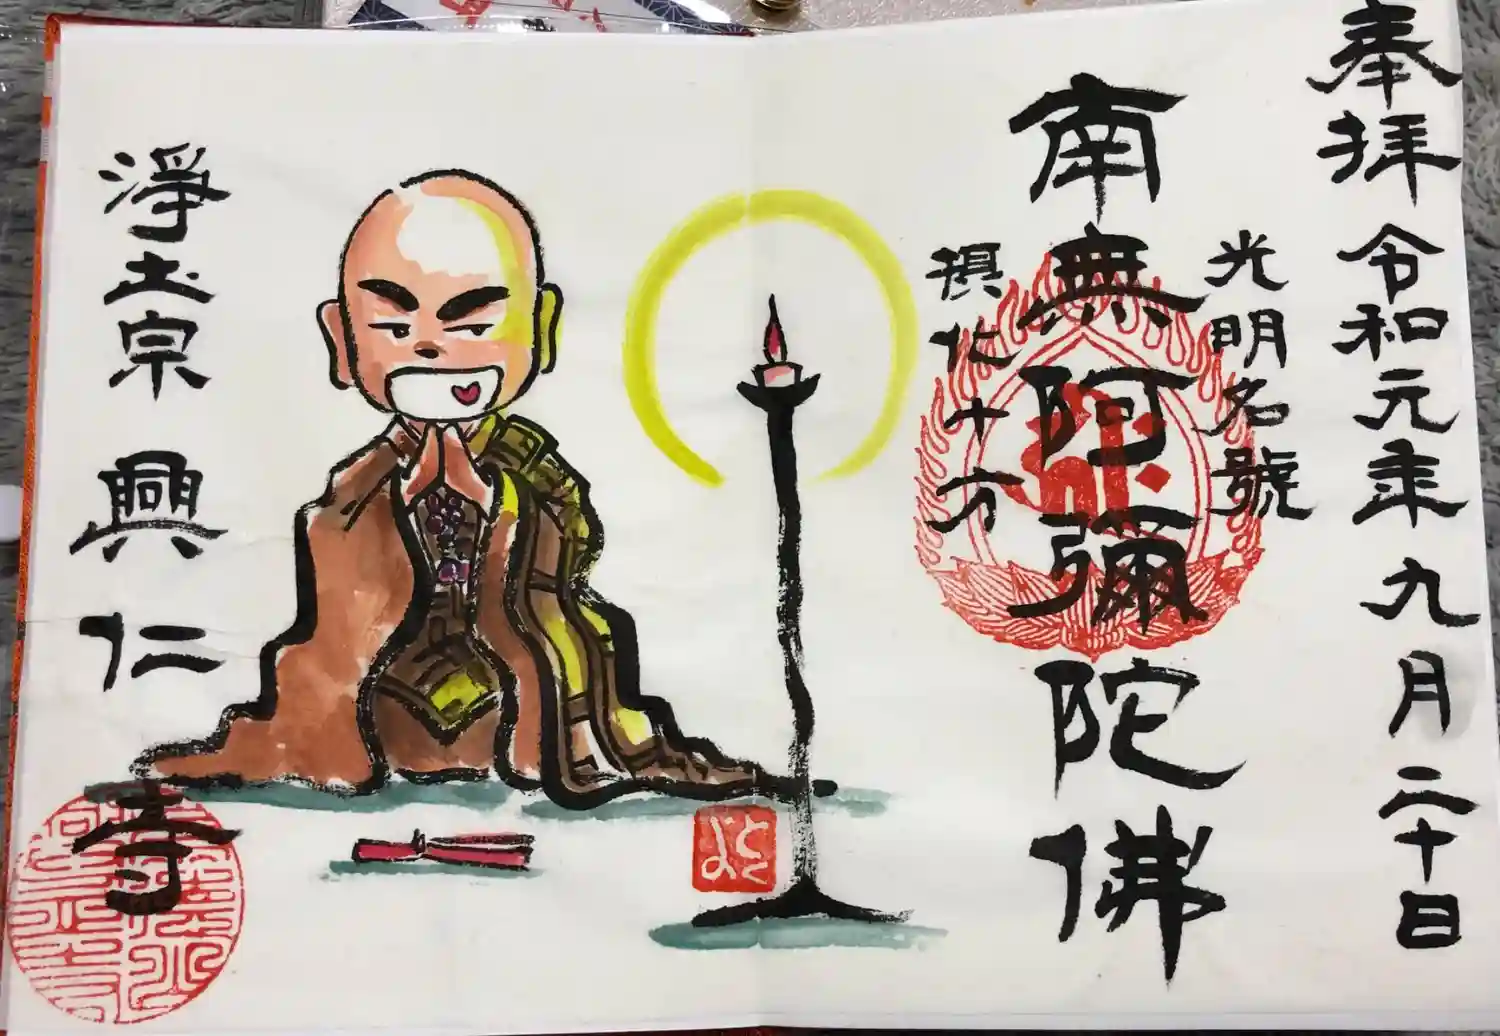 奉拝 令和元年九月二十日
光明名號
南無阿彌陀佛
摂化十方
浄土宗 興仁寺